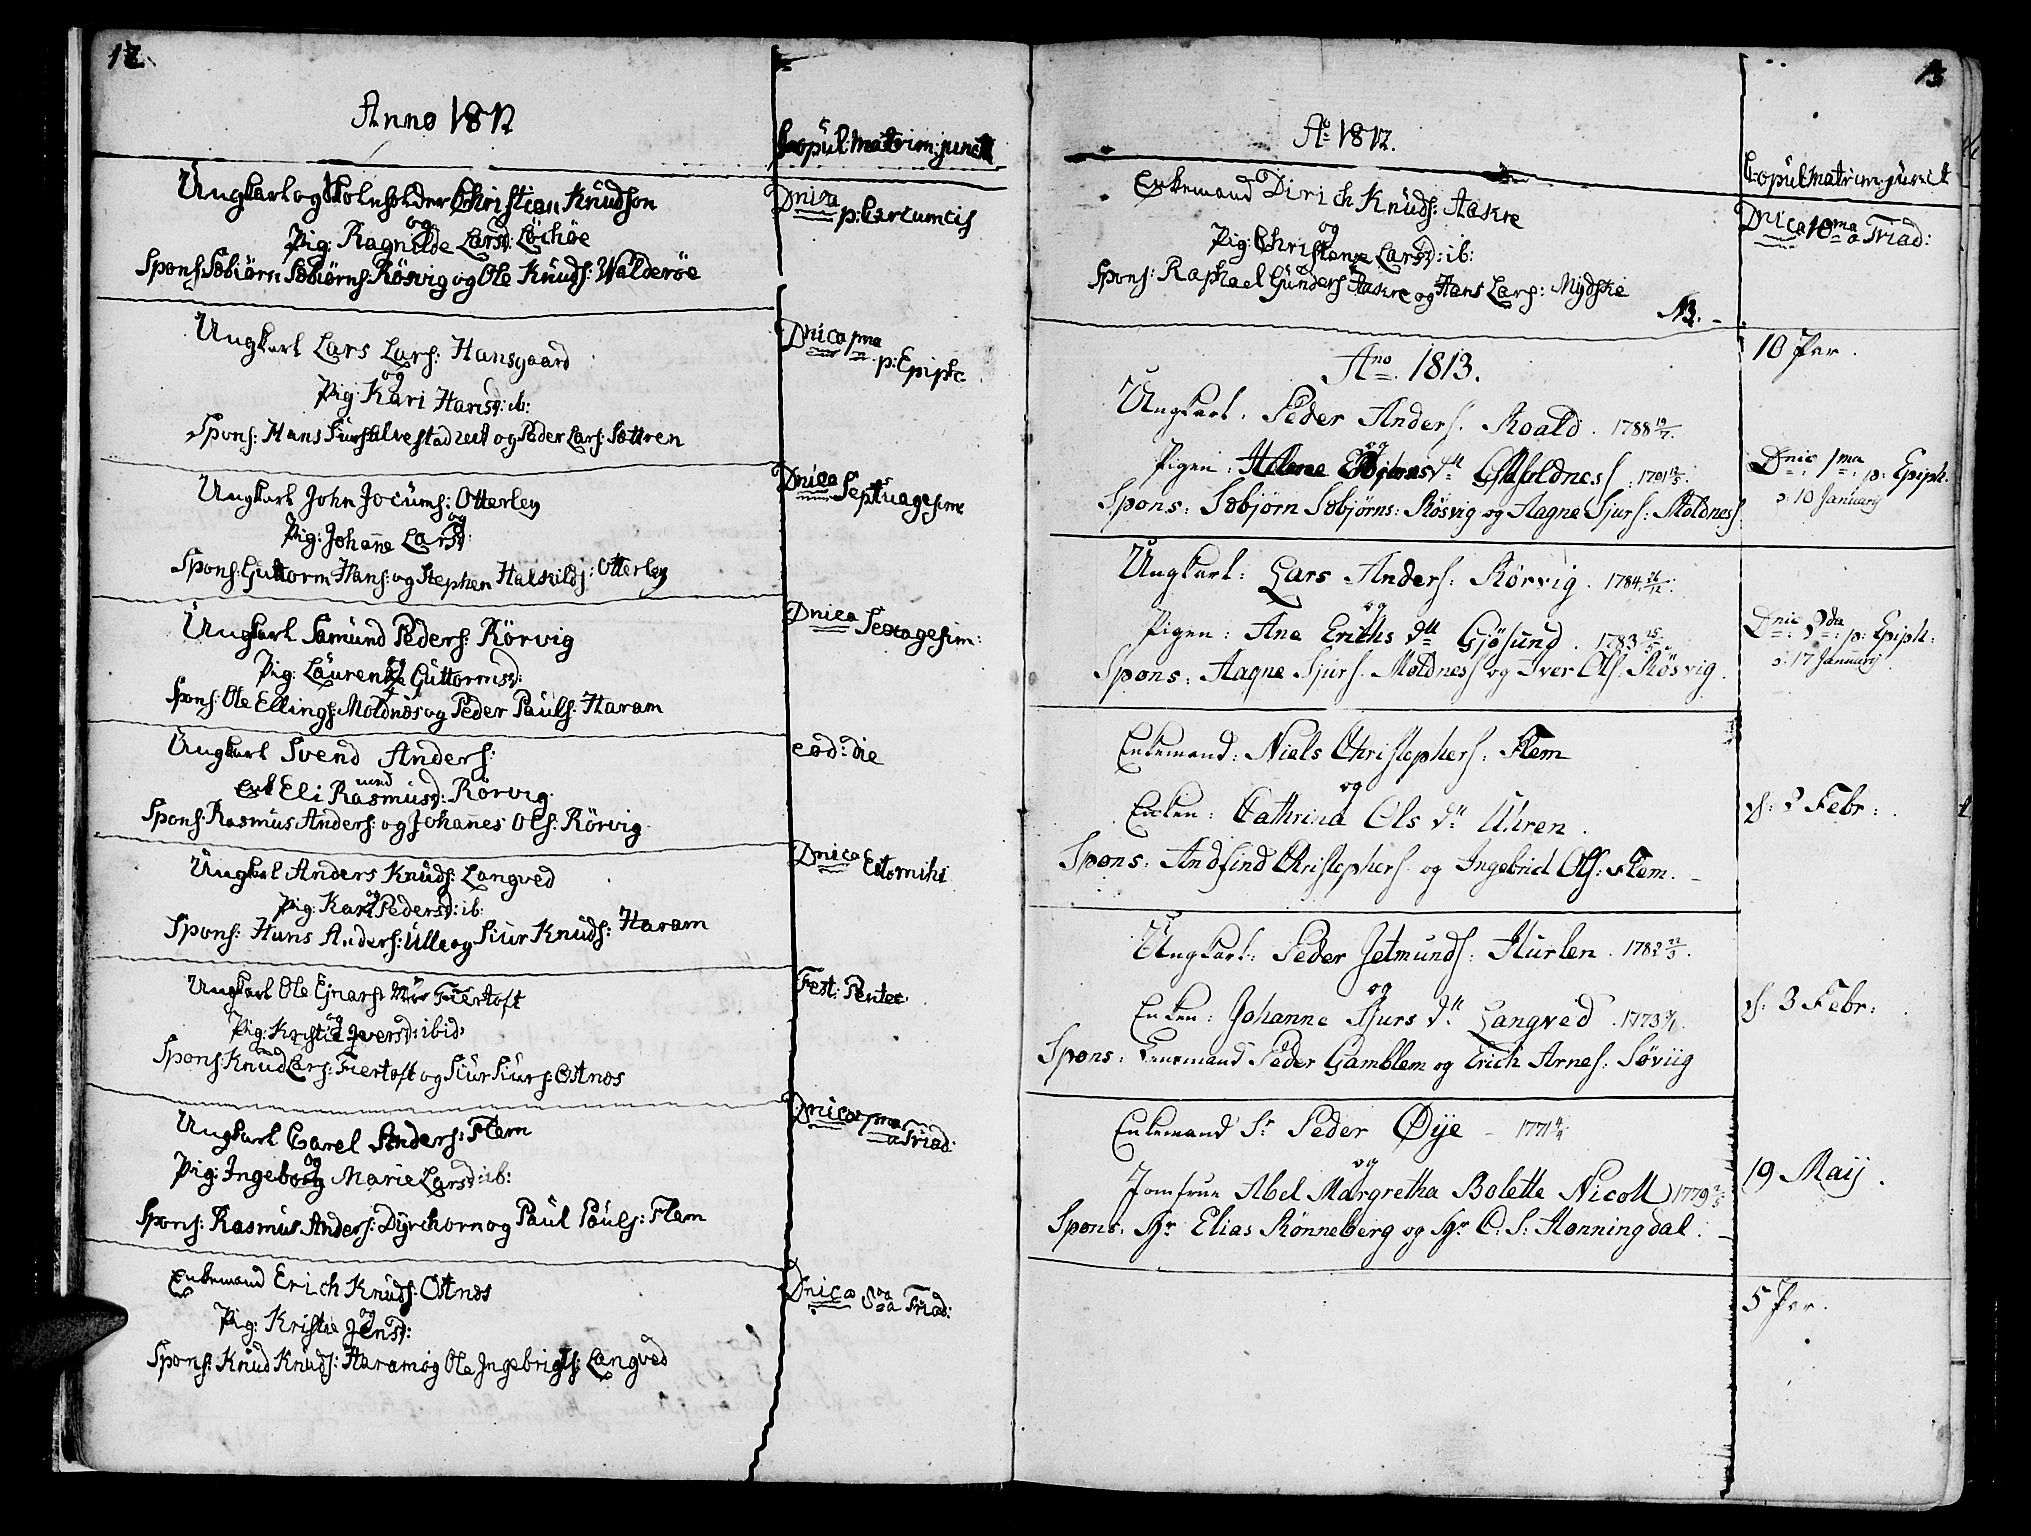 12.
Anno 1812
Copul: matrim: junct
Ungkarl og Christian Knudson
og
Pig: Ragnilde Larsd: Löchöe
Spons: Sæbiörn Sæbiörns: Rösvig og Ole Knuds: Walderöe
Dnica
p: Circumcis
Ungkarl Lars Lars: Hansgaard
og
Pig: Kari Hansd: ib:
Spons: Hans Siurs: og Peder Lars: Sættren
Dnica 1ma
p: Epiph:
Ungkarl John Jocums: Otterley
og
Pig: Johane Larsd:
Spons: Guttorm Hans: og Stephen Halskilds: Otterley
Dnica Septuagesim:
Ungkarl Samund Peders: Rörvig
og
Pig: Laurentze Guttormsd:
Spons: Ole Ellings: Moldnæs og Peder Pauls: Haram
Dnica Sexagesim:
Ungkarl Svend Anders:
med
Enk Eli Rasmusd: Rörvig
Spons: Rasmus Anders: og Johannes Ols: Rörvig
eod: die
Ungkarl Anders Knuds: Langved
og
Pig: Kari Pedersd: ib:
Spons: Hans Anders: Ulle og Siur Knuds: Haram
Dnica Estomihi
Ungkarl Ole Ejnars: Fiertoft
og
Pig: Kristie Iversd: ibid:
Spons: Knud Lars: Fiertoft og Siur Siurs: Ostnæs
Fest: Pentec:
Ungkarl Carel Anders: Flem
og
Pig: Ingeborg Marie Larsd: ib:
Spons: Rasmus Anders: Dyrkorn og Paul Pauls: Flem
Dnica 1ma
a Triad:
Enkemand Erich Knuds: Ostnæs
og
Pig: Kristie Jensd:
Spons: Knud Knuds: Haram og Ole Ingebrigts: Langved
Dnica 8va a Triad:
13
Ao 1812.
Copul matrim: junct
Enkemand Dirich Knuds: Aakre
og
Pig: Christene Larsd: ib:
Spons: Raphael Gunders Aakre og Hans Lars: Mydske
Dnica 18ma a Triad:
10 Par.
Ano 1813.
Ungkarl. Peder Anders. Roald. 1788 19/7.
og
Pigen: Helene Dtt
Spons: Sæbjørn Sæbjørns: Røsvig og Aagne Sjurs: Moldness.
Dnic 1ma p: Epiph.
d: 10 Januarij
Ungkarl: Lars Anders: Rørvig. 1784 26/12.
og
Pigen: Ane Erichs dtt Gjøsund. 1783 15/5.
Spons: Aagne Sjurs. Moldness og Iver Ols. Røsvig.
Dnic: 2da: p: Epiph:
d: 17 Januarij.
Enkemand: Niels Christophers: Flem
og
Enken: Cathrina Ols dtt Uhren.
Spons: Andfind Christophers. og Ingebrict Ols: Flem.
d: 3 Febr:
Ungkarl: Peder Jetmunds: Hurlen. 1782 22/3.
og
Enken: Johanne Sjurs dtt Langved. 1773
Spons: Lensmand Peder Gamblem og Erich Arnes: Søviig
d: 3 Febr:
Enkemand Sr Peder Øye – 1771 4/4
og
Jomfrue Abel Margretha Bolette Nicoll 1779
Spons: Hr Elias Rønneberg og Hr C. S: Honningdal.
19 Maij.
5 Par.